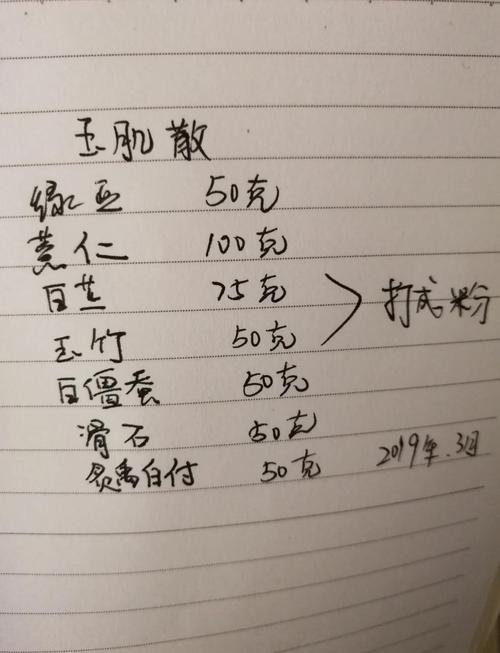 玉肌散
绿豆 50克
薏仁 100克
白芷 75克
玉竹 50克
打成粉
白僵蚕 50克
滑石 50克
炙禹白付 50克
2019年.3月